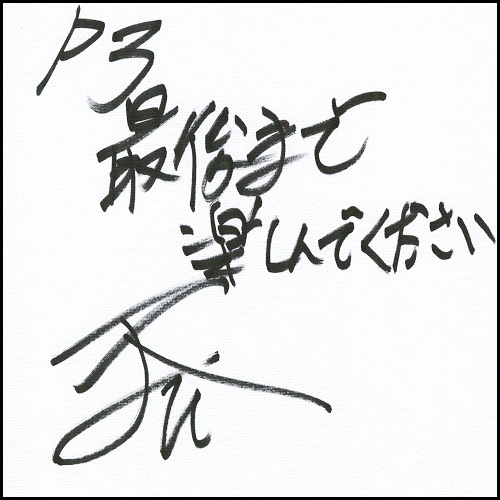 P3
最後まで
楽しんでください